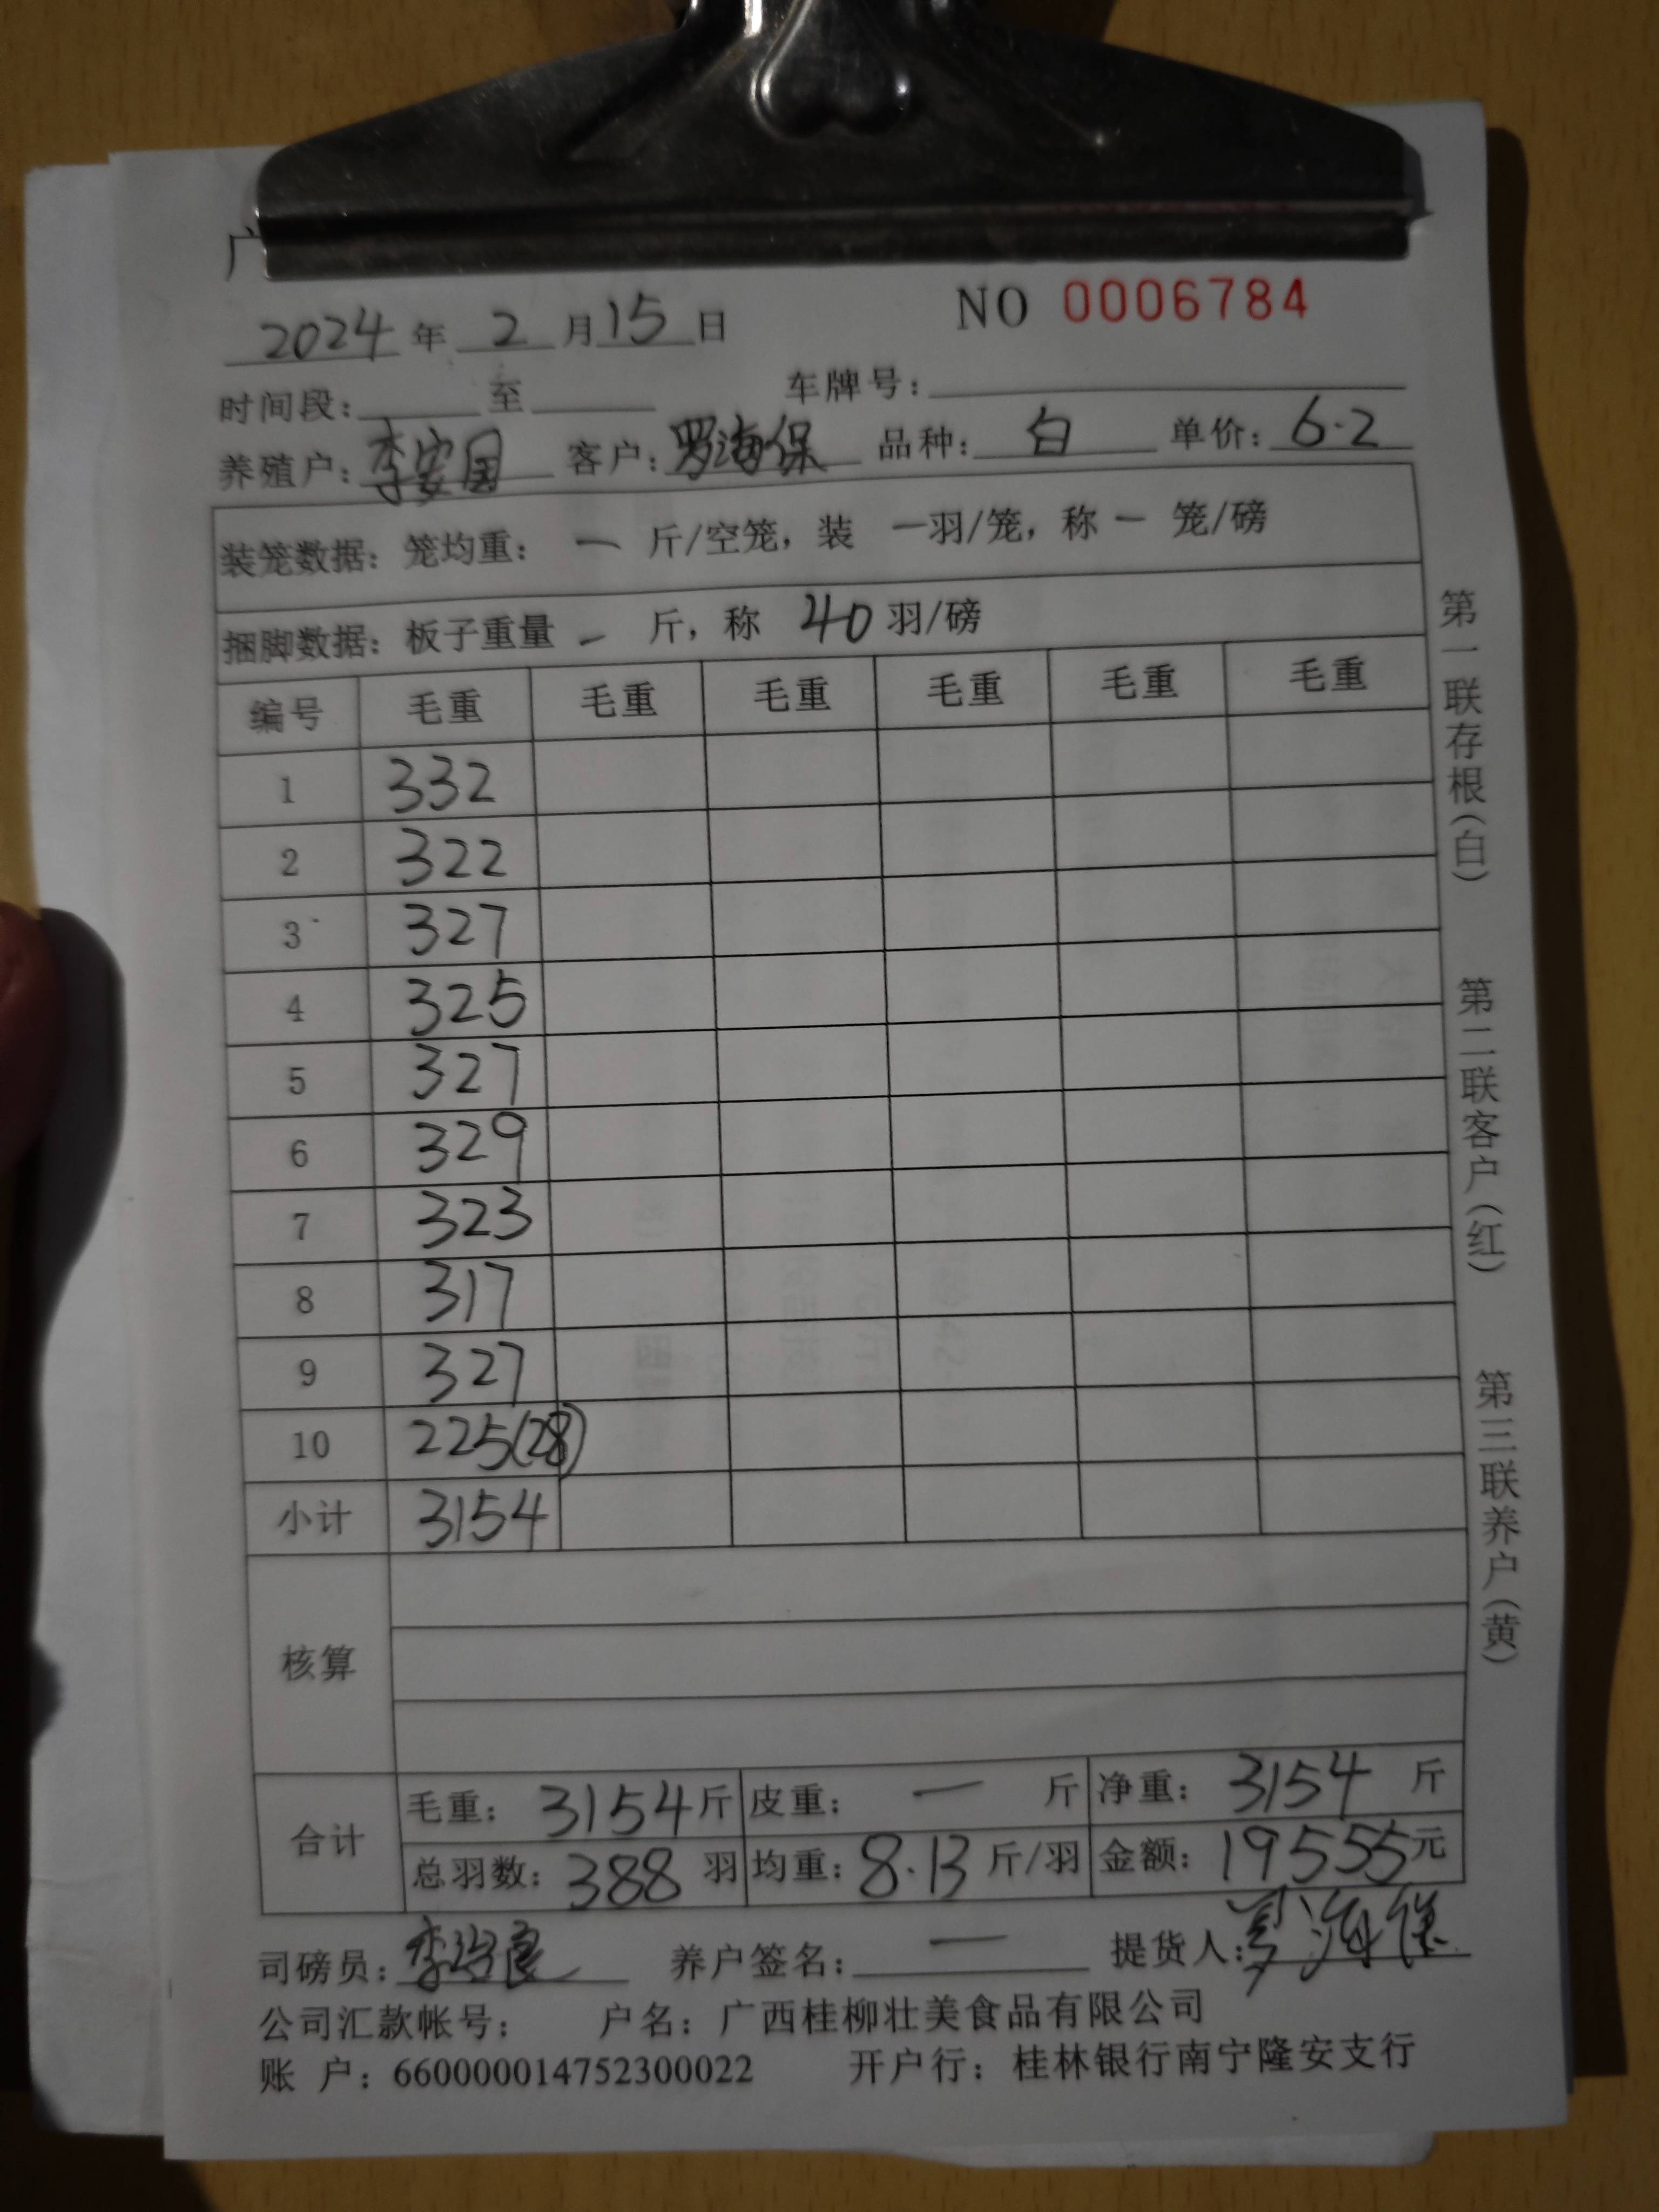 广
NO 0006784
2024 年 2 月 15 日
时间段: 至 车牌号:
养殖户: 李安国 客户: 罗海保 品种: 白 单价: 6.2
装笼数据: 笼均重: 一 斤/空笼, 装 一羽/笼, 称 一 笼/磅
捆脚数据: 板子重量 一 斤, 称 40 羽/磅
编号 毛重 毛重 毛重 毛重 毛重 毛重
1 332
2 322
3 327
4 325
5 327
6 329
7 323
8 317
9 327
10 225(28)
小计 3154
核算
合计
毛重: 3154 斤 皮重: 一 斤 净重: 3154 斤
总羽数: 388 羽 均重: 8.13 斤/羽 金额: 19555 元
司磅员: 李 良 养户签名: 一 提货人: 罗海保
公司汇款帐号: 户名: 广西桂柳壮美食品有限公司
账 户: 660000014752300022 开户行: 桂林银行南宁隆安支行
第一联存根(白)
第二联客户(红)
第三联养户(黄)